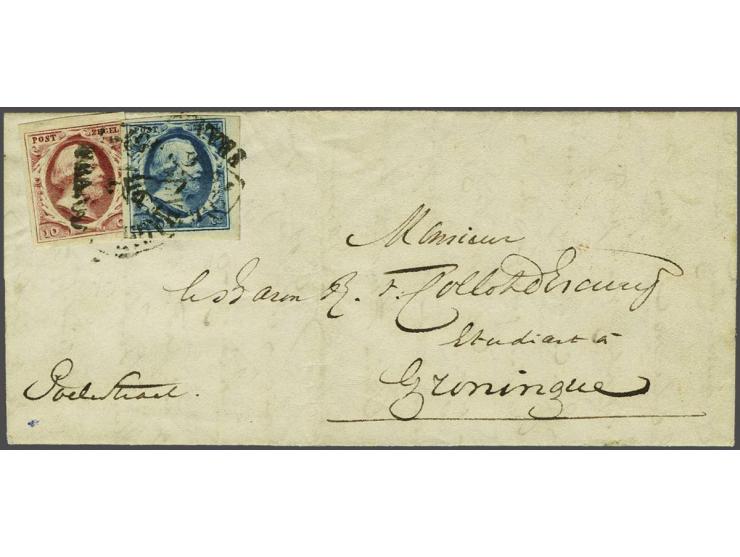 POST ZEGEL
10
Monsieur
le Baron R. v. Collot d'Escury
Etudiant à
Groningue
Poelestraat.